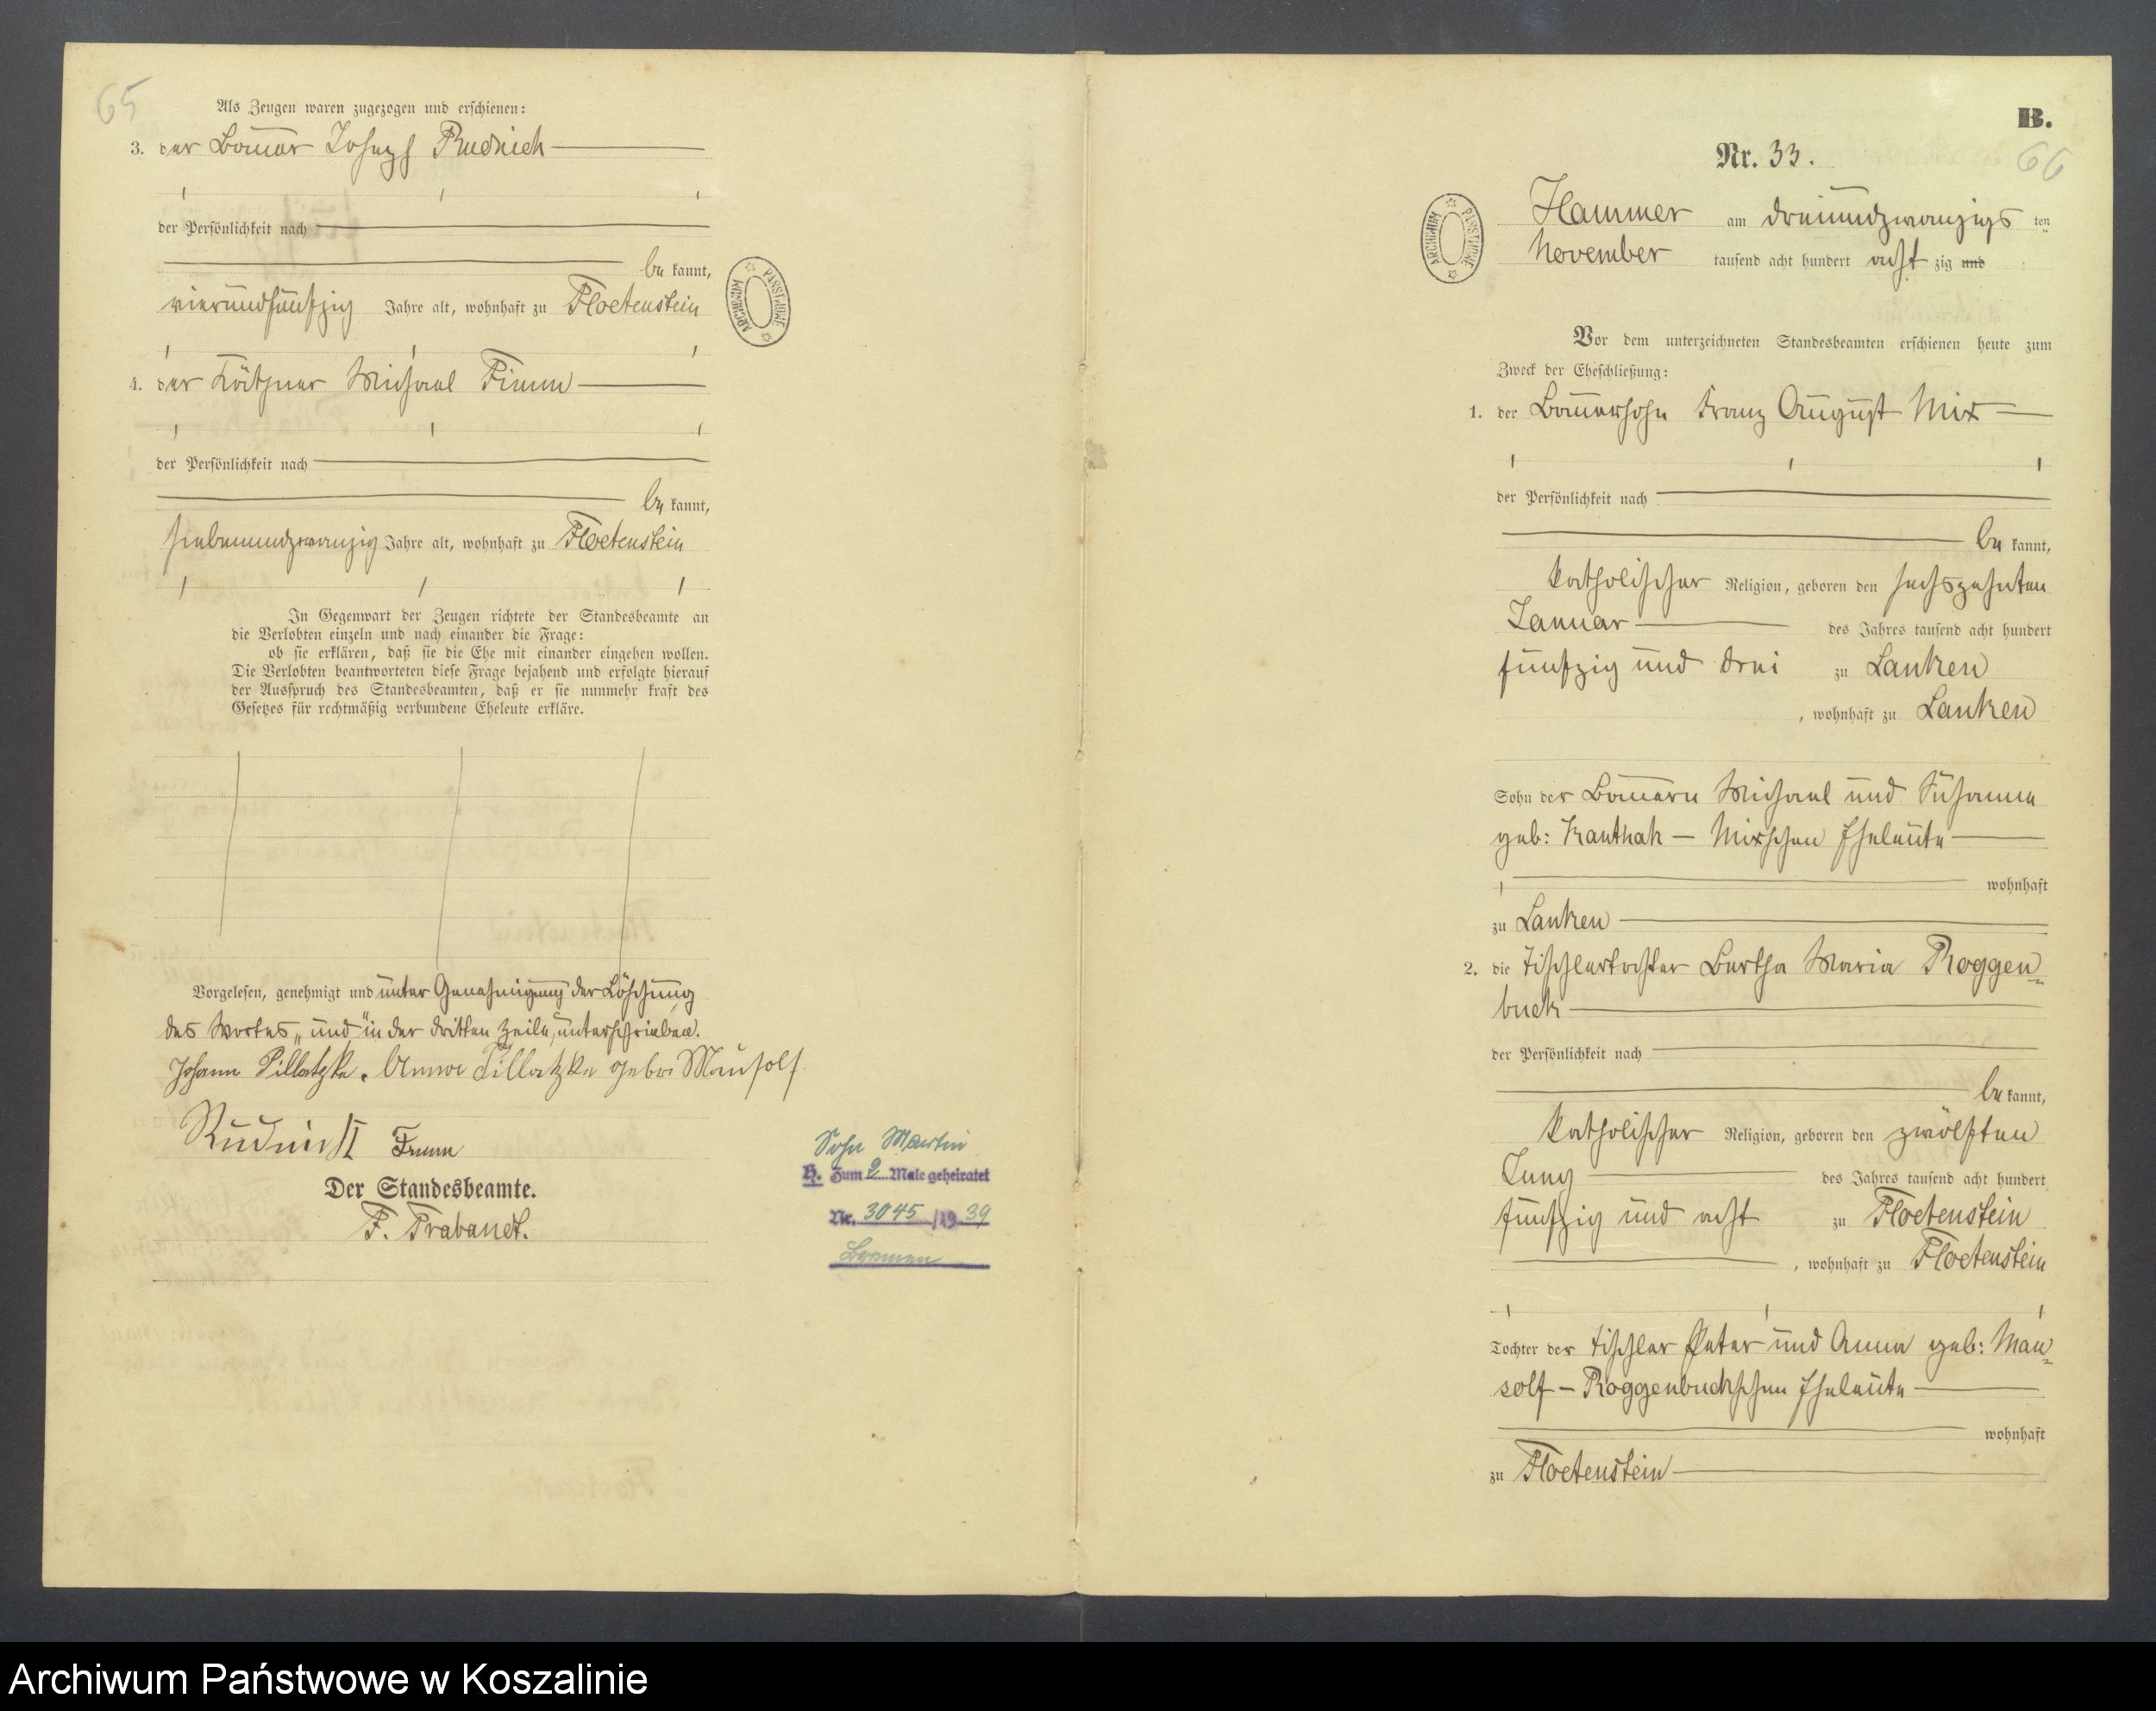 65
Als Zeugen waren zugezogen und erschienen:
3. der Bauer Joseph Rudnick
der Persönlichkeit nach
be kannt,
vierundfünfzig Jahre alt, wohnhaft zu Floetenstein
4. der Käthner Michael Fimm
der Persönlichkeit nach
be kannt,
siebenundzwanzig Jahre alt, wohnhaft zu Floetenstein
In Gegenwart der Zeugen richtete der Standesbeamte an
die Verlobten einzeln und nach einander die Frage:
ob sie erklären, daß sie die Ehe mit einander eingehen wollen.
Die Verlobten beantworteten diese Frage bejahend und erfolgte hierauf
der Ausspruch des Standesbeamten, daß er sie nunmehr kraft des
Gesetzes für rechtmäßig verbundene Eheleute erkläre.
Vorgelesen, genehmigt und unter Genehmigung der Löschung
des Wortes „und" in der dritten Zeile, unterschrieben.
Johann Pillatzke. Anna Pillatzke gebor Mausolf
Rudnick Fimm
Der Standesbeamte.
F. Trabandt.
Sohn Martin
H. Zum 2 Male geheiratet
Nr. 3045 /19 39
Bremen
ARCHIWUM PAŃSTWOWE
B.
66
Nr. 33.
Hammer am dreiundzwanzigs ten
November tausend acht hundert acht zig und
ARCHIWUM PAŃSTWOWE
Vor dem unterzeichneten Standesbeamten erschienen heute zum
Zweck der Eheschließung:
1. der Bauersohn Franz August Mix
der Persönlichkeit nach
be kannt,
katholischer Religion, geboren den sechszehnten
Januar des Jahres tausend acht hundert
fünfzig und drei zu Lanken
, wohnhaft zu Lanken
Sohn der Bauern Michael und Susanna
geb: Kanthak – Mixschen Eheleute
wohnhaft
zu Lanken
2. die Tischlertochter Bertha Maria Roggen=
buck
der Persönlichkeit nach
be kannt,
katholischer Religion, geboren den zwölften
Juny des Jahres tausend acht hundert
fünfzig und acht zu Floetenstein
, wohnhaft zu Floetenstein
Tochter der Tischler Peter und Anna geb: Mau=
solf – Roggenbuckschen Eheleute
wohnhaft
zu Floetenstein
Archiwum Państwowe w Koszalinie